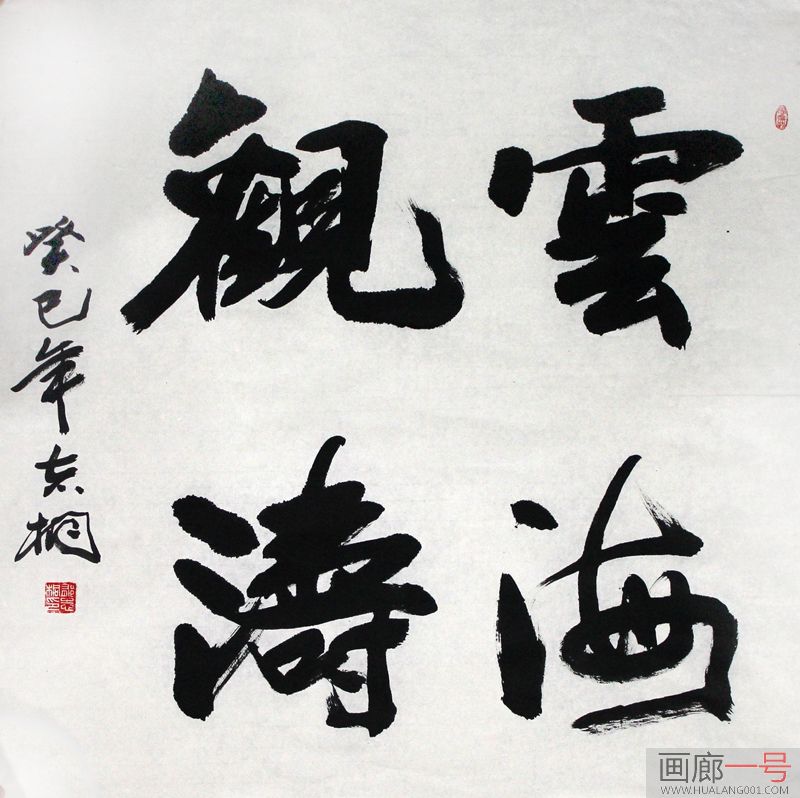 雲海
觀濤
癸巳年志桐
画廊一号
WWW.HUALANG001.COM